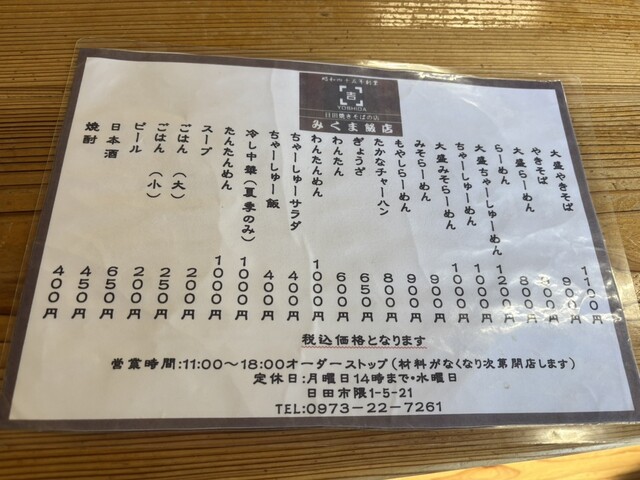 昭和四十三年創業
吉
YOSHIDA
日田焼きそばの店
みくま飯店
大盛やきそば 1100円
やきそば 900円
大盛らーめん 900円
らーめん 800円
大盛ちゃーしゅーめん 1200円
ちゃーしゅーめん 1000円
大盛みそらーめん 1000円
みそらーめん 900円
もやしらーめん 900円
たかなチャーハン 800円
ぎょうざ 650円
わんたん 600円
わんたんめん 1000円
ちゃーしゅーサラダ 400円
ちゃーしゅー飯 400円
冷し中華（夏季のみ） 1000円
たんたんめん 1000円
スープ 200円
ごはん（大） 250円
ごはん（小） 200円
ビール 650円
日本酒 450円
焼酎 400円
税込価格となります
営業時間:11:00～18:00オーダーストップ(材料がなくなり次第閉店します)
定休日:月曜日14時まで・水曜日
日田市隈1-5-21
TEL:0973-22-7261